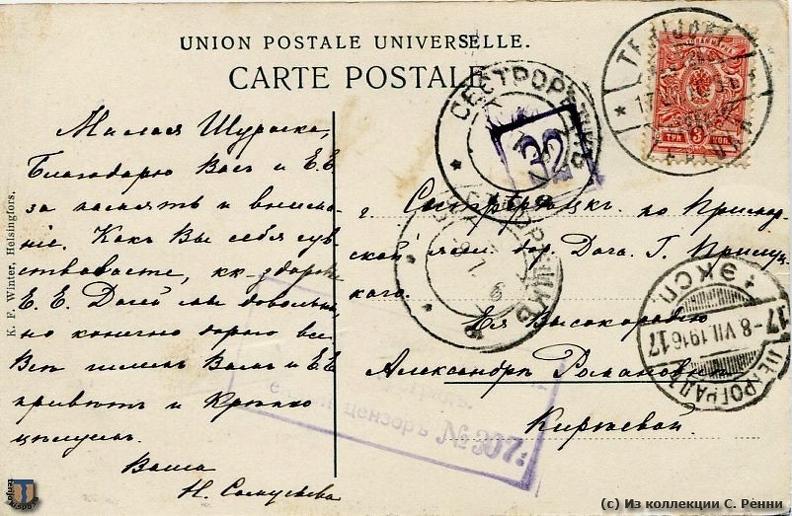 UNION POSTALE UNIVERSELLE.
CARTE POSTALE
Милая Шурочка,
Благодарю Васъ и Е.Е.
за память и внима-
ніе. Какъ Вы себя чув-
ствоваете, какъ здоровье
Е.Е. Дачей мы довольны,
но конечно дорого все
Всѣ шлемъ Вамъ и Е.Е.
привѣтъ и крѣпко
цѣлуемъ.
Ваша
Н.
г. Сестрорѣцкъ. по Примор-
ской жел. дор. Дача. Г.
каго.
Ея Высокородію
Александрѣ Романовнѣ
K. F. Winter, Helsingfors.
СЕСТРОРѢЦКЪ
32
TERIJOKI
ТРИ 3 КОП.
ЭКСП.
17 -8 VII.1916 17
ПЕТРОГРАДЪ
цензоръ № 307.
terijoki
(c) Из коллекции С. Ренни